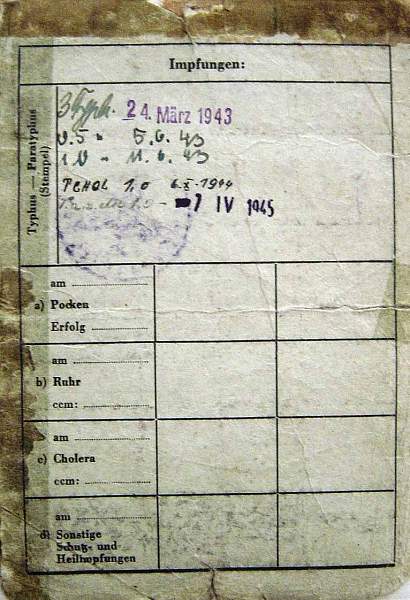 Impfungen:
Typhus — Paratyphus
(Stempel)
24. März 1943
0.5 " 5.6.43
1.0 " 11.6.43
TCHOL 1,0 6.X-1944
1.0 - 7 IV 1945
am
a) Pocken
Erfolg
am
b) Ruhr
ccm:
am
c) Cholera
ccm:
am
d) Sonstige
Schutz- und
Heilimpfungen